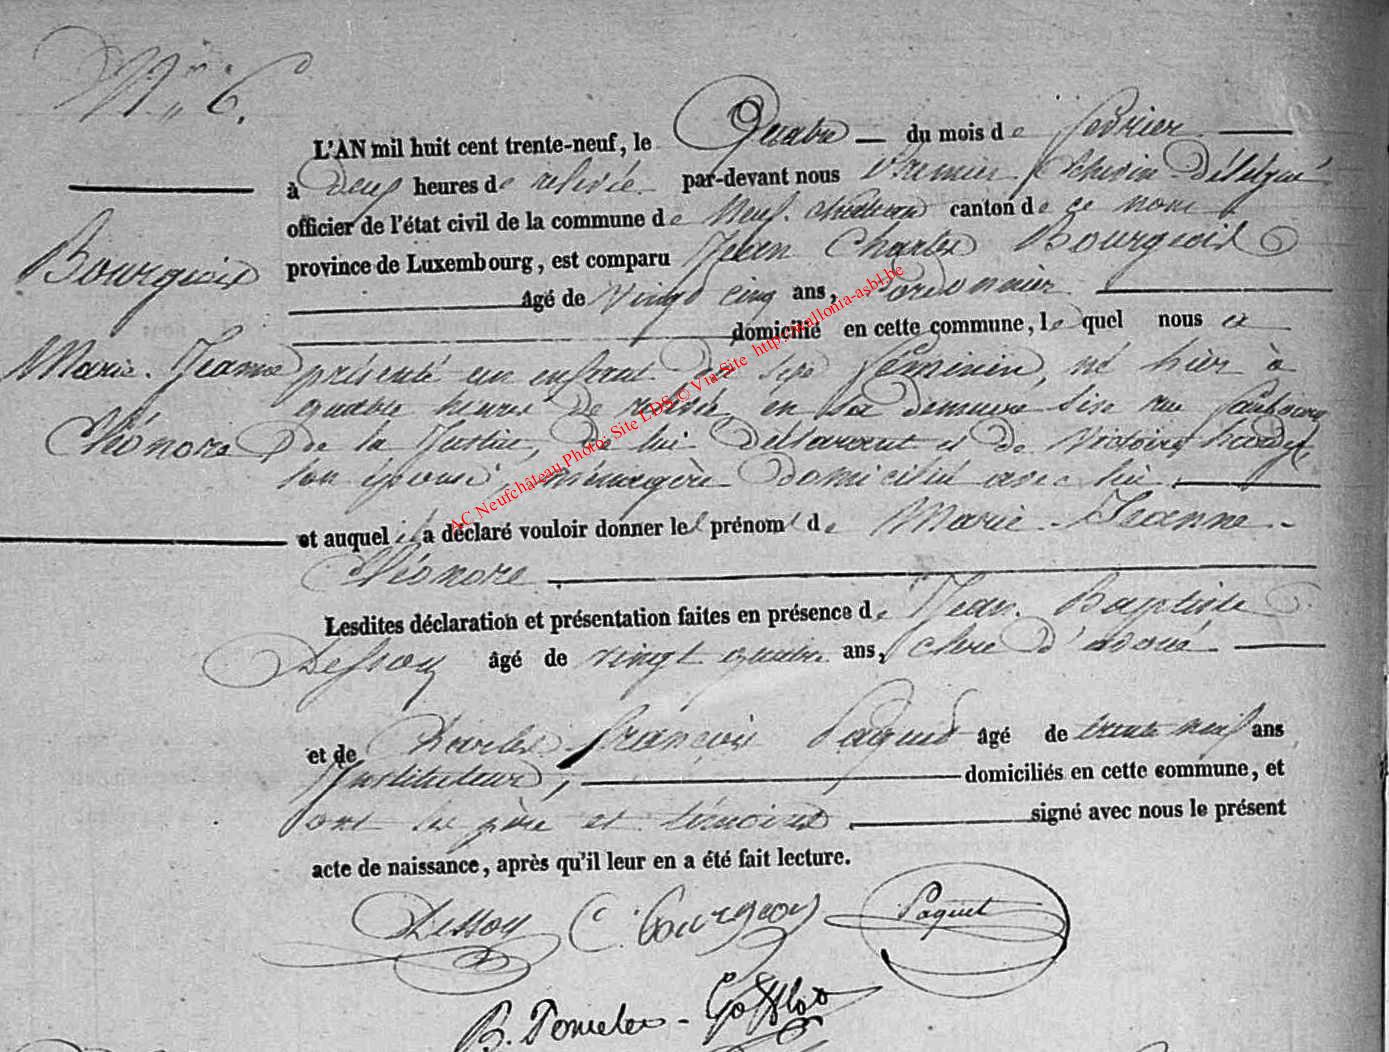 N° 6.
L'AN mil huit cent trente-neuf, le Quatre du mois de février
à deux heures de relevée par-devant nous Premier Echevin Délégué
officier de l'état civil de la commune de Neufchateau canton de ce nom
Bourgeois
province de Luxembourg, est comparu Jean Charles Bourgeois
âgé de vingt cinq ans, Cordonnier
domicilié en cette commune, lequel nous a
Marie-Jeanne
présenté un enfant du sexe féminin, né hier à
quatre heures de relevée, en sa demeure sise rue faubourg
Eléonore
de la Justice, de lui déclarant et de Victoire
son épouse, ménagère domiciliée avec lui
et auquel il a déclaré vouloir donner les prénoms de Marie-Jeanne-
Eléonore
Lesdites déclaration et présentation faites en présence de Jean-Baptiste
Dessoy âgé de vingt quatre ans, clerc d'avoué
et de Charles françois Paquet âgé de trente neuf ans
Instituteur, domiciliés en cette commune, et
ont les père et témoins signé avec nous le présent
acte de naissance, après qu'il leur en a été fait lecture.
Dessoy C. Bourgeois Paquet
AC Neufchâteau Photo: Site LDS © Via Site http://wallonia-asbl.be